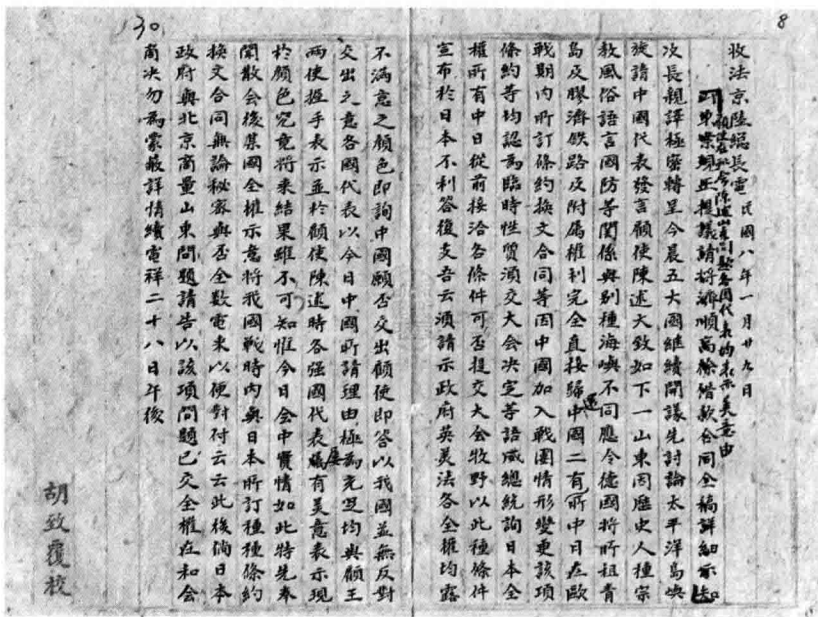 8
收法京陸總長電 民國八年一月廿九日
顧使在和会陳述山東問題各國代表均表示美意由
山東案現正提議請將濟順高徐借款合同全稿詳細示知
次長親譯極密轉呈今晨五大國繼續開議先討論太平洋島嶼
旋請中國代表發言顧使陳述大致如下一山東因歷史人種宗
教風俗語言國防等関係與别種海嶼不同應令德國將所租青
島及膠濟鉄路及附屬權利完全直接歸還中國二有所中日在歐
戰期内所訂條約換文合同等因中國加入戰團情形變更該項
條約等均認為臨時性質須交大会决定等語威總統詢日本全
權所有中日從前接洽各條件可否提交大会牧野以此種條件
宣布於日本不利答復支吾云須請示政府英美法各全權均露
130
不滿意之顏色即詢中國願否交出顧使即答以我國並無反對
交出之意各國代表以今日中國所請理由極為充足均與顧王
兩使握手表示並於顧使陳述時各强國代表屢有美意表示現
於顏色究竟將來結果雖不可知惟今日会中實情如此特先奉
聞散会後某國全權示意將我國戰時内與日本所訂種種條約
換文合同無論秘密與否全數電來以便對付云云此後倘日本
政府與北京商量山東問題請告以該項問題已交全權在和会
商决勿為蒙蔽詳情續電祥二十八日午後
胡致覆校